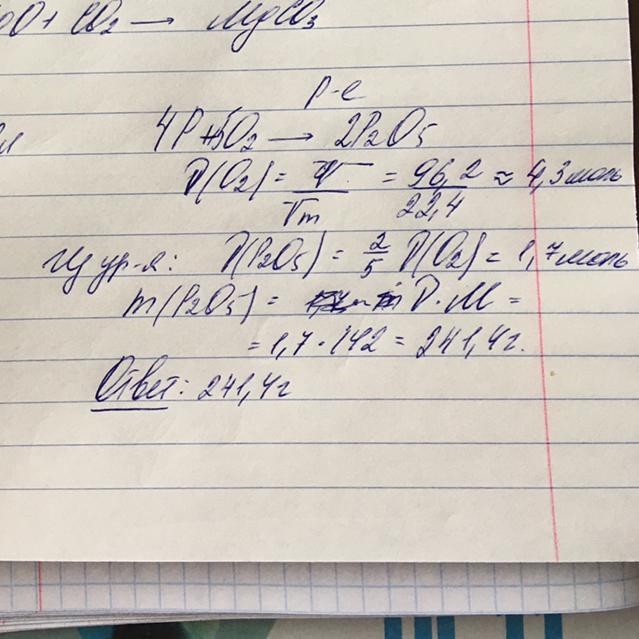 gO + CO2 → MgCO3
р-е
4P + 5O2 → 2P2O5
ν(O2) = V/Vm = 96,2/22,4 ≈ 4,3 моль
Из ур-я: ν(P2O5) = 2/5 ν(O2) = 1,7 моль
m(P2O5) = ν · M =
= 1,7 · 142 = 241,4 г.
Ответ: 241,4 г